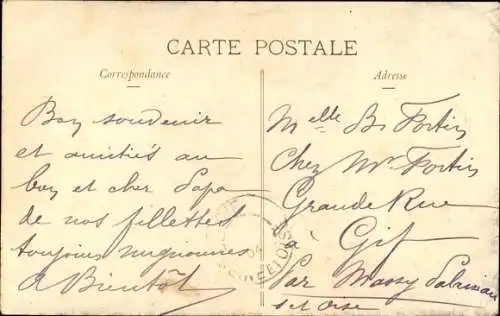 CARTE POSTALE
Correspondance
Adresse
Bon souvenir
et amitiés au
bon et cher Papa
de nos fillettes
toujours mignonnes
A Bientôt
Melle B. Fortin
Chez Mr Fortin
Grande Rue
à
Gif
Par Massy Palaiseau
Set Oise